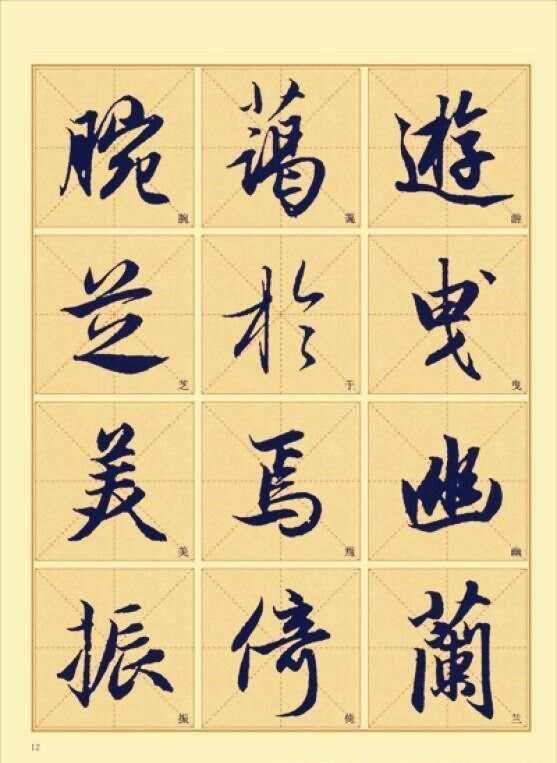 遊曳幽蘭
游曳幽兰
藹於焉倚
蔼于焉倚
腕芝美振
腕芝美振
12